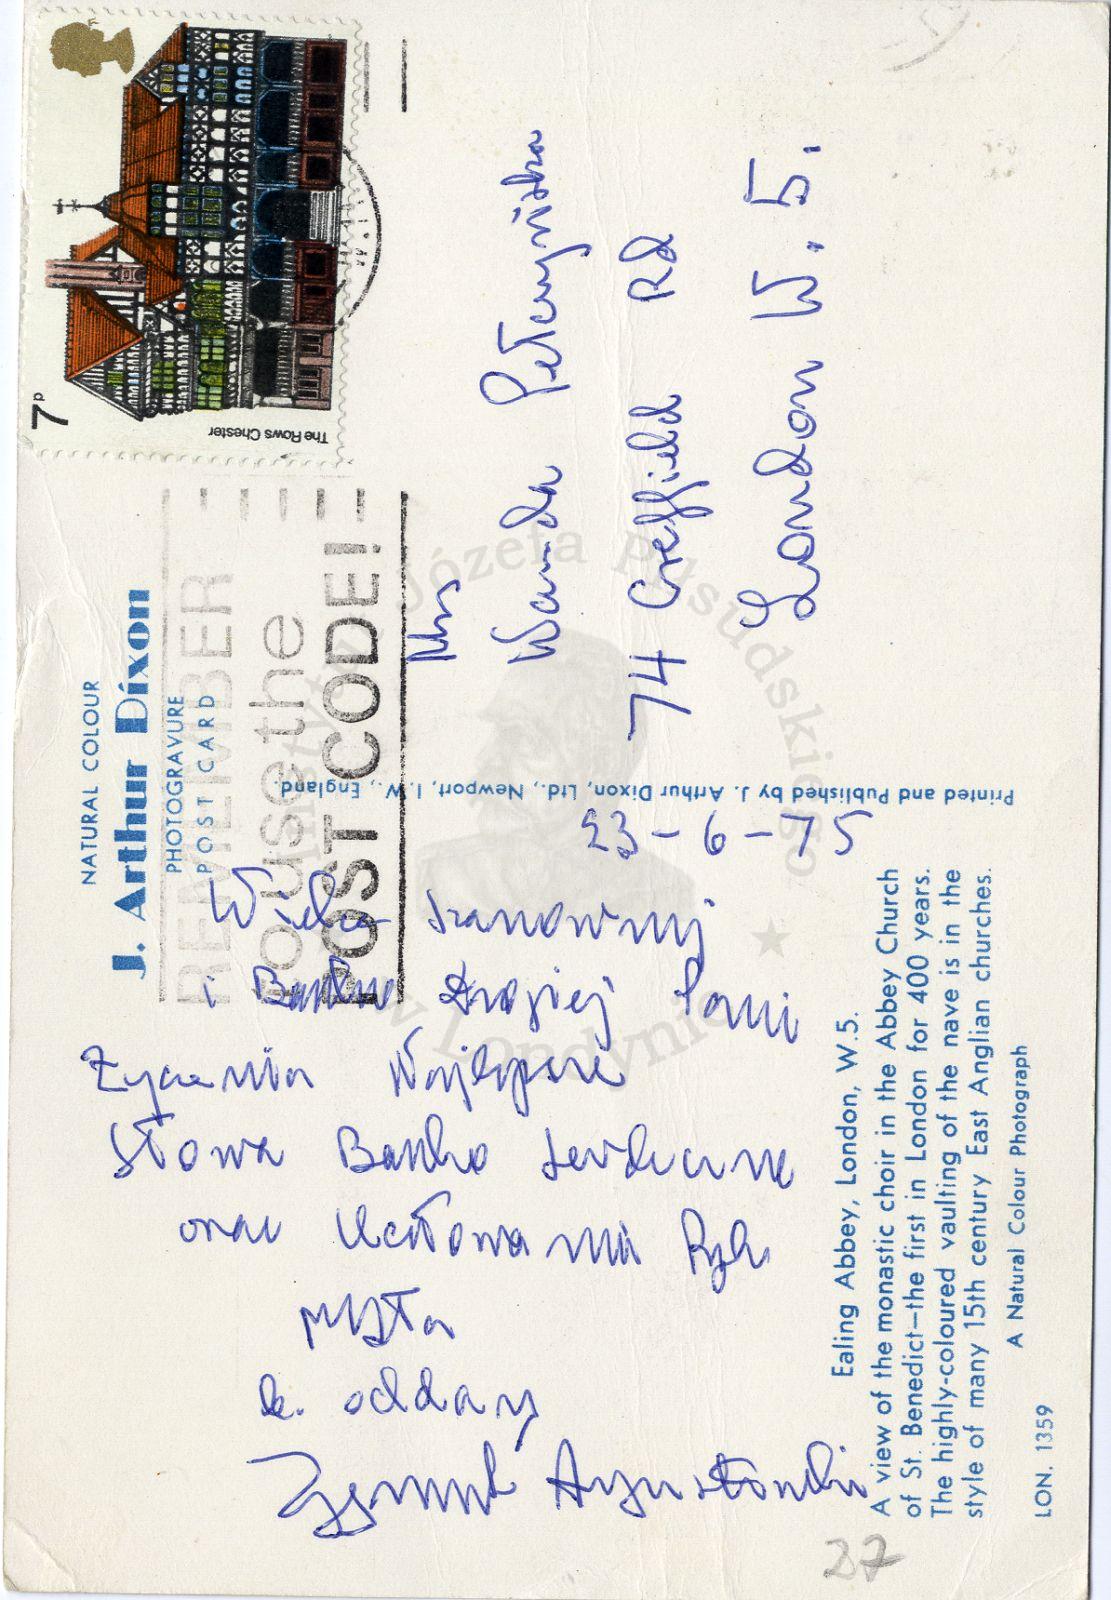 NATURAL COLOUR
J. Arthur Dixon
PHOTOGRAVURE
POST CARD
7p
The Rows Chester
REMEMBER
use the
POST CODE!
23-6-75
Wielce Szanownej
i Bardzo Drogiej Pani
Życzenia Najlepsze
Słowa Bardzo Serdeczne
oraz Ucałowania Rąk
przesyła
b. oddany
Zygmunt
Mrs
Wanda Pełczyńska
74 Creffield Rd
London W. 5.
Printed and Published by J. Arthur Dixon, Ltd., Newport, I.W., England.
Ealing Abbey, London, W.5.
A view of the monastic choir in the Abbey Church
of St. Benedict—the first in London for 400 years.
The highly-coloured vaulting of the nave is in the
style of many 15th century East Anglian churches.
A Natural Colour Photograph
LON. 1359
27
Józefa Piłsudskiego
w Londynie